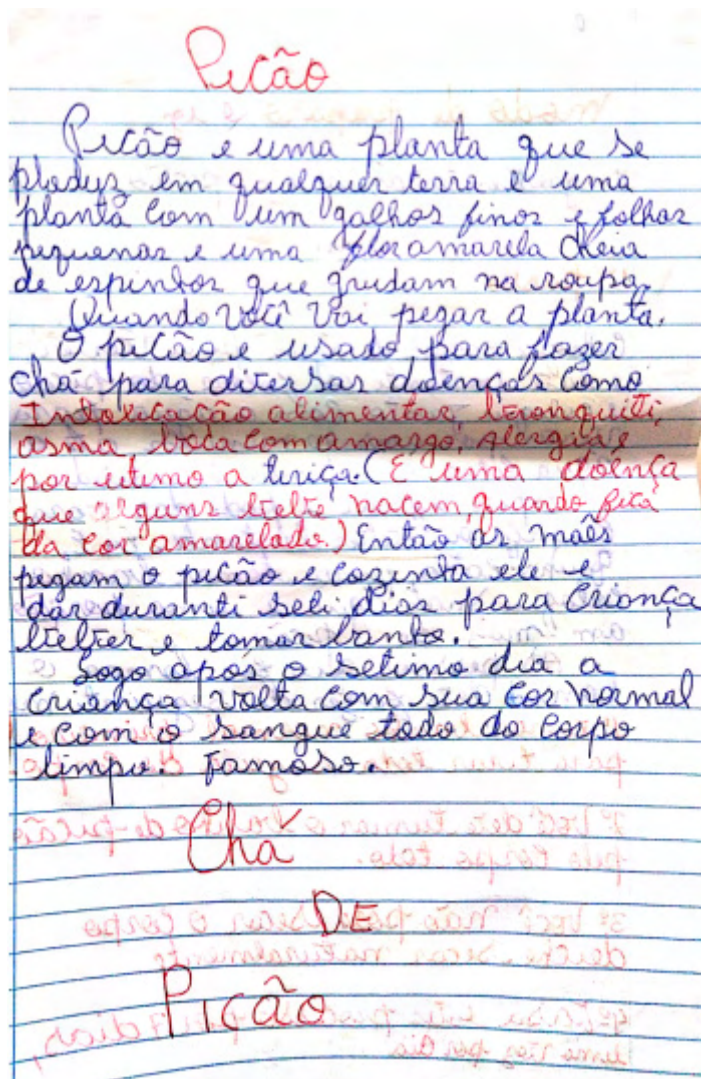 Picão
Picão e uma planta que se
pladuz em qualquer terra e uma
planta com um galhos finos e folhas
pequenas e uma flor amarela cheia
de espinhos que grudam na roupa.
Quando você vai pegar a planta.
O picão e usado para fazer
chá para diversas doenças como
Intoxicação alimentar, bronquiti,
asma, boca com amargo, alergia e
por utimo a tiriça. (E uma doença
que alguns bebe nacem, quando fica
da cor amarelado.) Então as mães
pegam o picão e cozinha ele e
dar duranti seti dias para criança
beber e tomar banho.
Logo após o setimo dia a
criança volta com sua cor normal
e com o sangue todo do corpo
limpo. Famoso.
Chá
DE
Picão